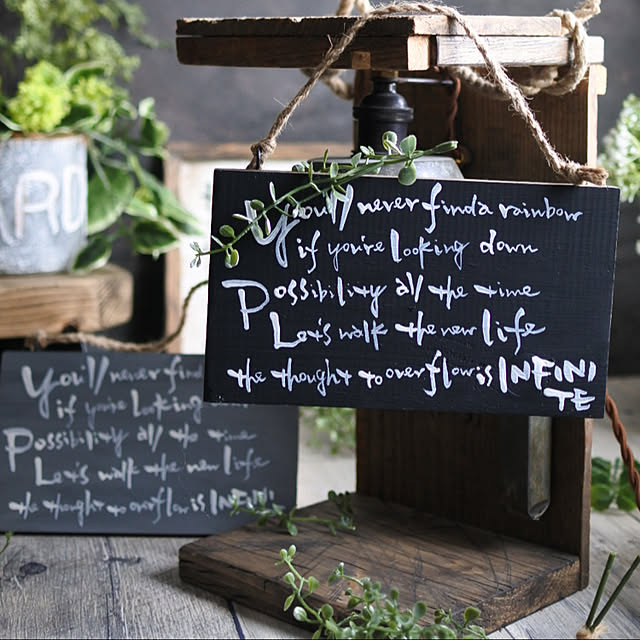 ARD
You'll never find a rainbow
if you're looking down
Possibility all the time
Let's walk the new life
the thought to overflow is INFINI
TE
You'll never find
if you're looking down
Possibility all the time
Let's walk the new life
the thought to overflow is INFINI